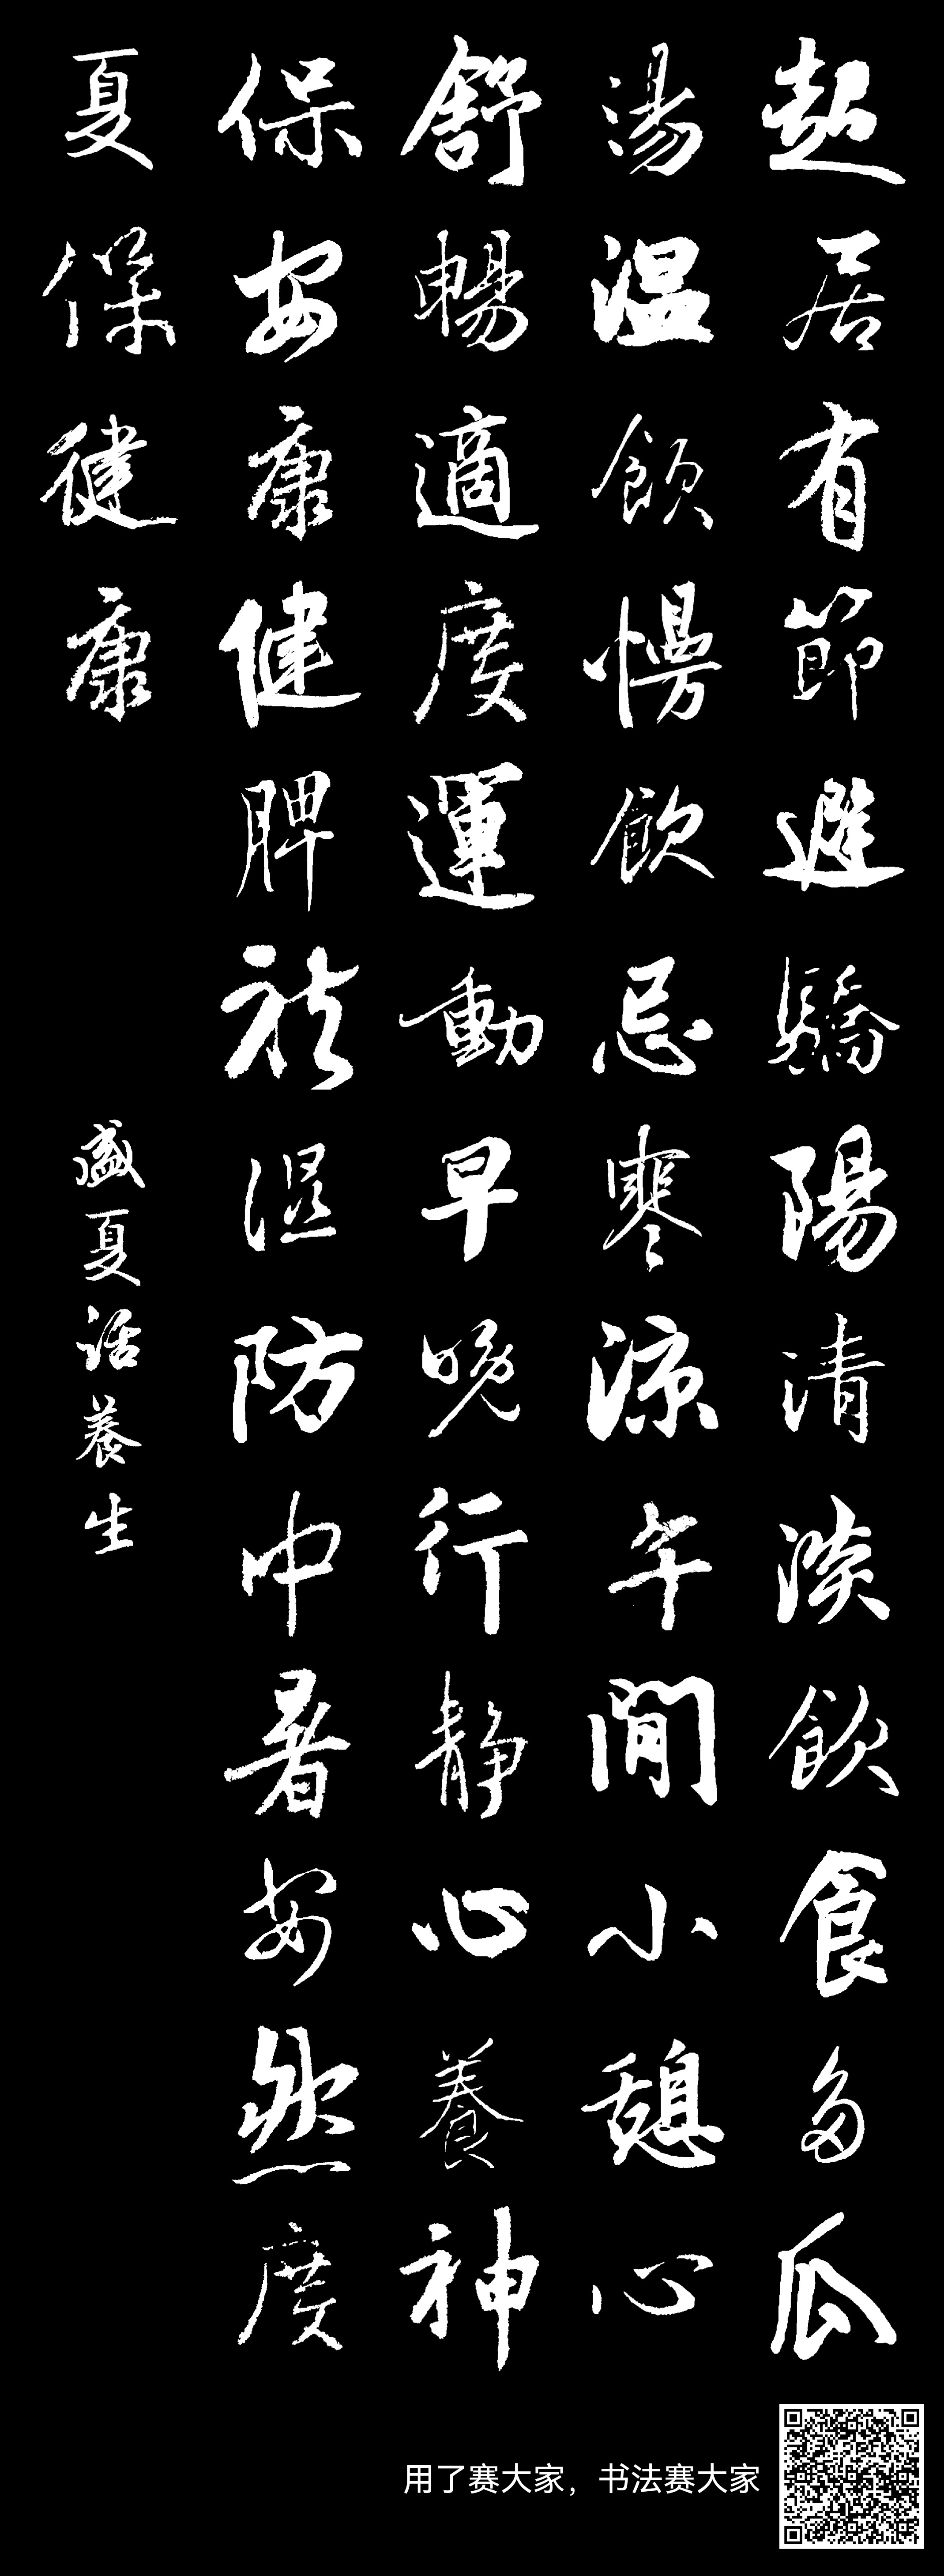 起居有節避驕陽清淡飲食多瓜
湯温飲慢飲忌寒涼午間小憩心
舒暢適度運動早晚行静心養神
保安康健脾祛湿防中暑安然度
夏保健康
盛夏话養生
用了赛大家，书法赛大家